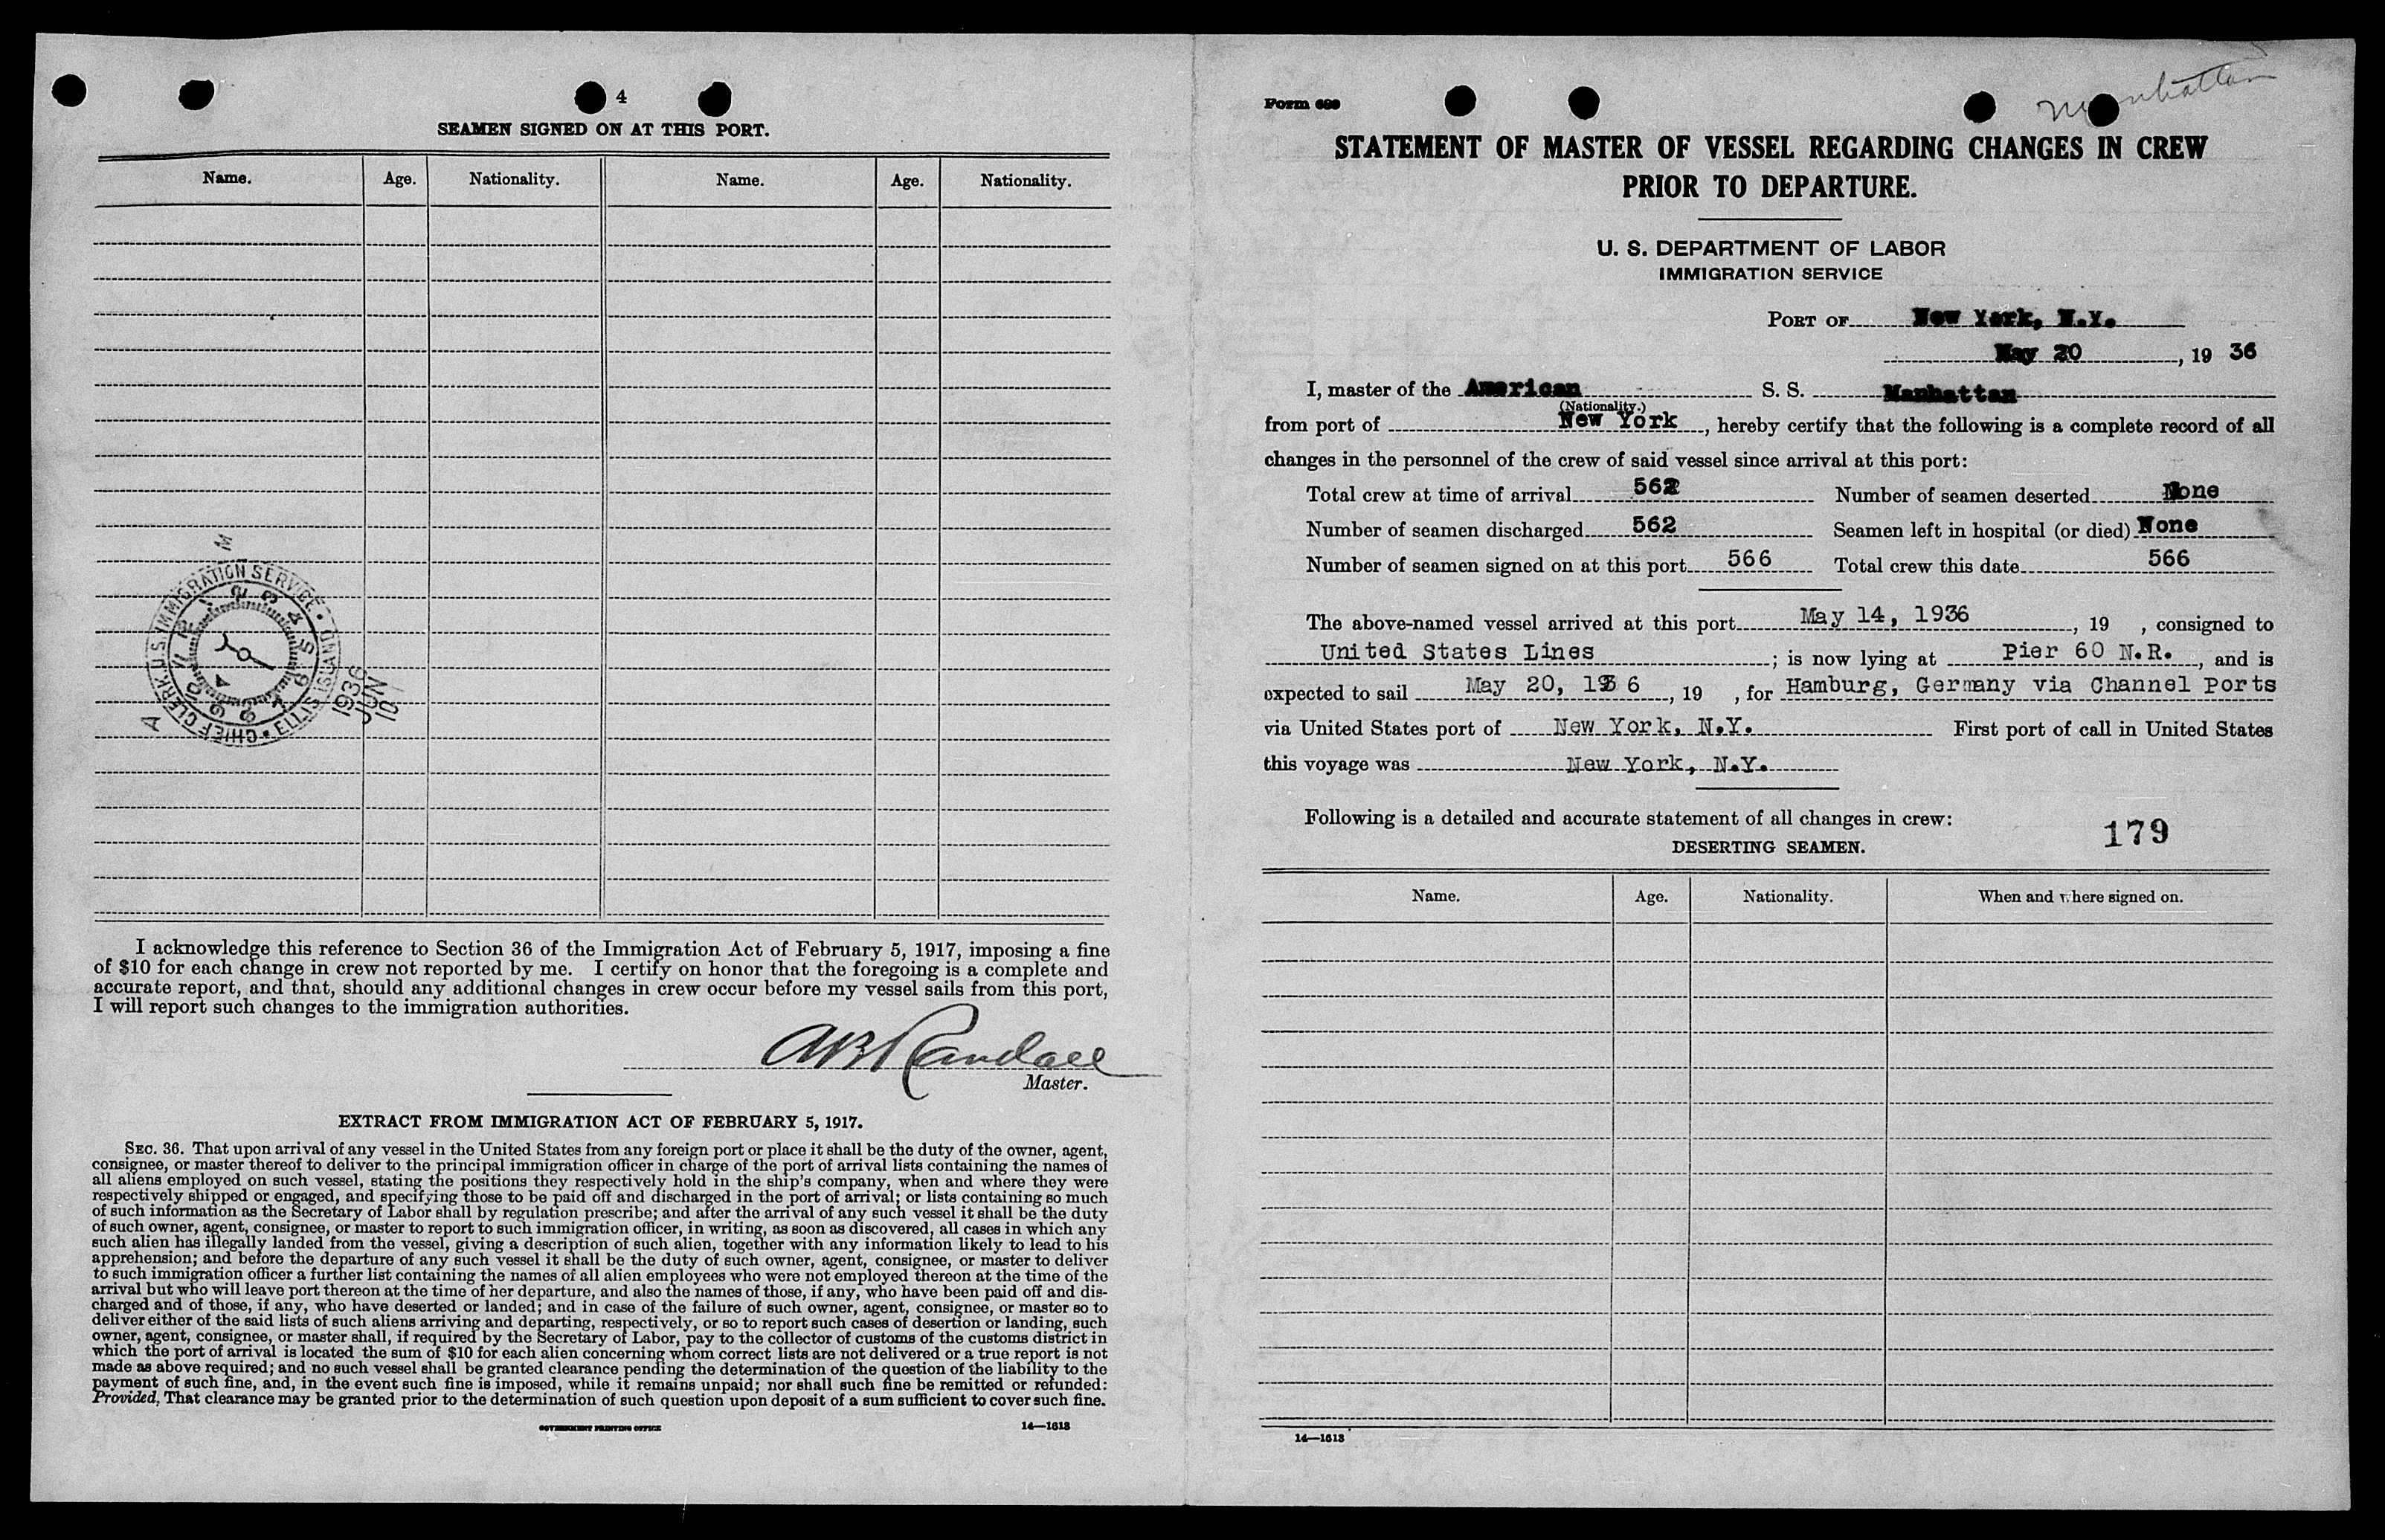 4
SEAMEN SIGNED ON AT THIS PORT.
Name. Age. Nationality. Name. Age. Nationality.
M
U.S. IMMIGRATION SERVICE • ELLIS ISLAND • CHIEF CLERK
1 2 3 4 5 6 7 8 9 10 11
A
1936
JUN
10
I acknowledge this reference to Section 36 of the Immigration Act of February 5, 1917, imposing a fine
of $10 for each change in crew not reported by me. I certify on honor that the foregoing is a complete and
accurate report, and that, should any additional changes in crew occur before my vessel sails from this port,
I will report such changes to the immigration authorities.
AB Randall
Master.
EXTRACT FROM IMMIGRATION ACT OF FEBRUARY 5, 1917.
SEC. 36. That upon arrival of any vessel in the United States from any foreign port or place it shall be the duty of the owner, agent,
consignee, or master thereof to deliver to the principal immigration officer in charge of the port of arrival lists containing the names of
all aliens employed on such vessel, stating the positions they respectively hold in the ship's company, when and where they were
respectively shipped or engaged, and specifying those to be paid off and discharged in the port of arrival; or lists containing so much
of such information as the Secretary of Labor shall by regulation prescribe; and after the arrival of any such vessel it shall be the duty
of such owner, agent, consignee, or master to report to such immigration officer, in writing, as soon as discovered, all cases in which any
such alien has illegally landed from the vessel, giving a description of such alien, together with any information likely to lead to his
apprehension; and before the departure of any such vessel it shall be the duty of such owner, agent, consignee, or master to deliver
to such immigration officer a further list containing the names of all alien employees who were not employed thereon at the time of the
arrival but who will leave port thereon at the time of her departure, and also the names of those, if any, who have been paid off and dis-
charged and of those, if any, who have deserted or landed; and in case of the failure of such owner, agent, consignee, or master so to
deliver either of the said lists of such aliens arriving and departing, respectively, or so to report such cases of desertion or landing, such
owner, agent, consignee, or master shall, if required by the Secretary of Labor, pay to the collector of customs of the customs district in
which the port of arrival is located the sum of $10 for each alien concerning whom correct lists are not delivered or a true report is not
made as above required; and no such vessel shall be granted clearance pending the determination of the question of the liability to the
payment of such fine, and, in the event such fine is imposed, while it remains unpaid; nor shall such fine be remitted or refunded:
Provided, That clearance may be granted prior to the determination of such question upon deposit of a sum sufficient to cover such fine.
GOVERNMENT PRINTING OFFICE 14—1613
Form 689
Manhattan
STATEMENT OF MASTER OF VESSEL REGARDING CHANGES IN CREW
PRIOR TO DEPARTURE.
U. S. DEPARTMENT OF LABOR
IMMIGRATION SERVICE
PORT OF New York, N.Y.
May 20, 19 36
I, master of the American S. S. Manhattan
(Nationality.)
from port of New York, hereby certify that the following is a complete record of all
changes in the personnel of the crew of said vessel since arrival at this port:
Total crew at time of arrival 562 Number of seamen deserted None
Number of seamen discharged 562 Seamen left in hospital (or died) None
Number of seamen signed on at this port 566 Total crew this date 566
The above-named vessel arrived at this port May 14, 1936, 19 , consigned to
United States Lines; is now lying at Pier 60 N.R., and is
expected to sail May 20, 1936, 19 , for Hamburg, Germany via Channel Ports
via United States port of New York, N.Y. First port of call in United States
this voyage was New York, N.Y.
Following is a detailed and accurate statement of all changes in crew:
179
DESERTING SEAMEN.
Name. Age. Nationality. When and where signed on.
14—1613